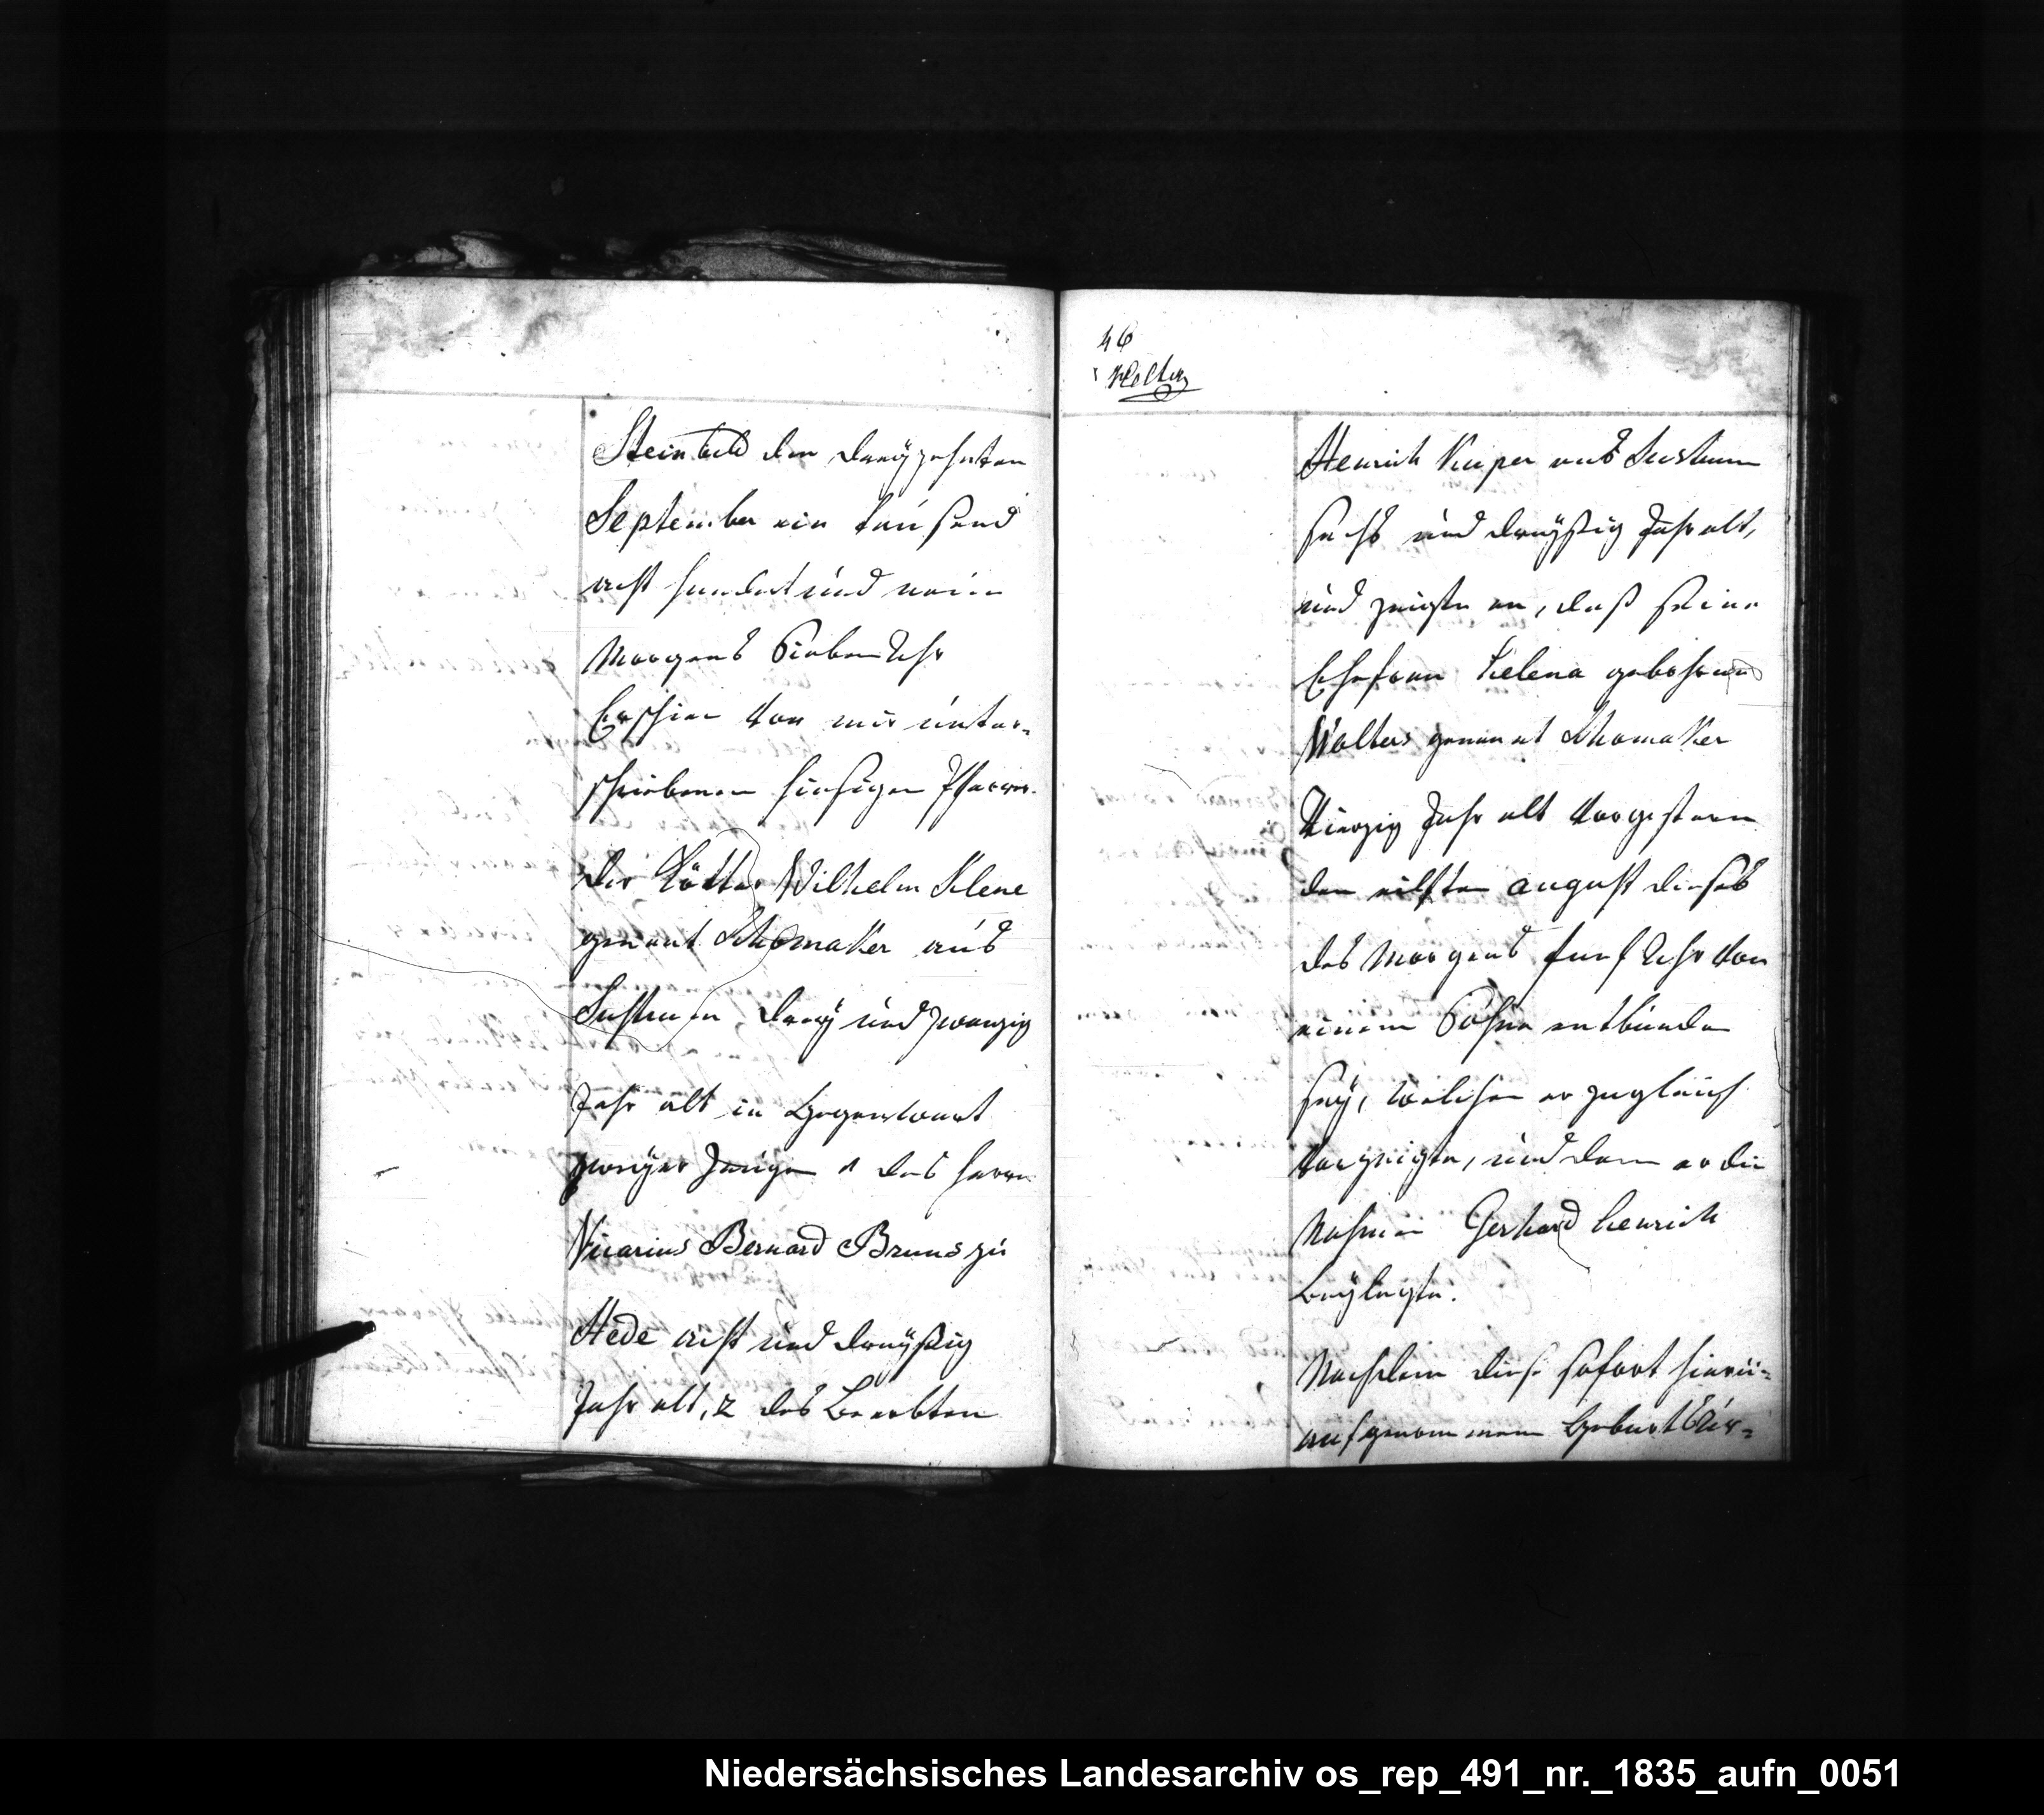 Steinbild den dreÿzehnten
September ein tausend
acht hundert und neün
Morgens Sieben Uhr
Erschien vor mir unter=
schriebenen hiesigen Pfarrer
der Kötter Wilhelm Klene
genant Schomaker aus
Sustrum, dreÿ und zwanzig
Jahr alt in Gegenwart
zweÿer Zeugen 1 des Herrn
Vicarius Bernard Bruns zu
Hede acht und dreÿßig
Jahr alt, 2 des Beerbten
46
Henrich Kuper aus Sustrum
sechs und dreÿßig Jahr alt,
und zeigte an, daß seine
Ehefrau Helena gebohrene
Wolters genannt Schomaker
Vierzig Jahr alt vorgestern
den eilften august dieses
des Morgens funf Uhr von
einem Sohne entbunden
seÿ, welchen er zugleich
vorzeigte, und dem er die
Nahmen Gerhard henrich
beÿlegte.
Nachdem diese sofort hierü=
aufgenommene Geburtsur=
Niedersächsisches Landesarchiv os_rep_491_nr._1835_aufn_0051